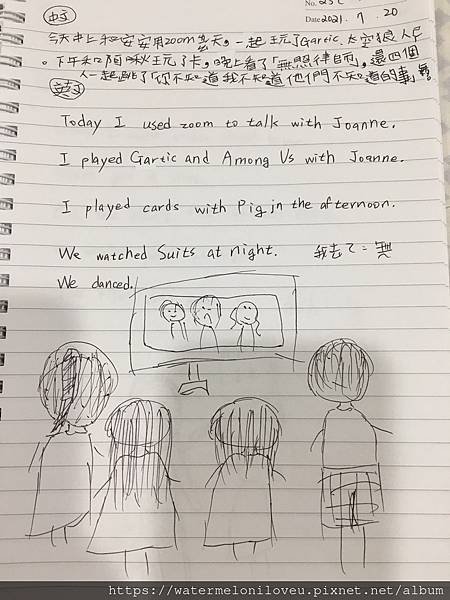 No.
Date 2021. 7. 20
中文
今天早上和安安用zoom聊天,一起玩了Gartic、太空狼人殺
。下午和阿啾玩了卡,晚上看了「無照律師」,還四個
人一起跳了「你不知道我不知道他們不知道的事」
英文
Today I used zoom to talk with Joanne.
I played Gartic and Among Us with Joanne.
I played cards with Pig in the afternoon.
We watched Suits at night. 我去了:無
We danced.
https://watermeloniloveu.pixnet.net/album